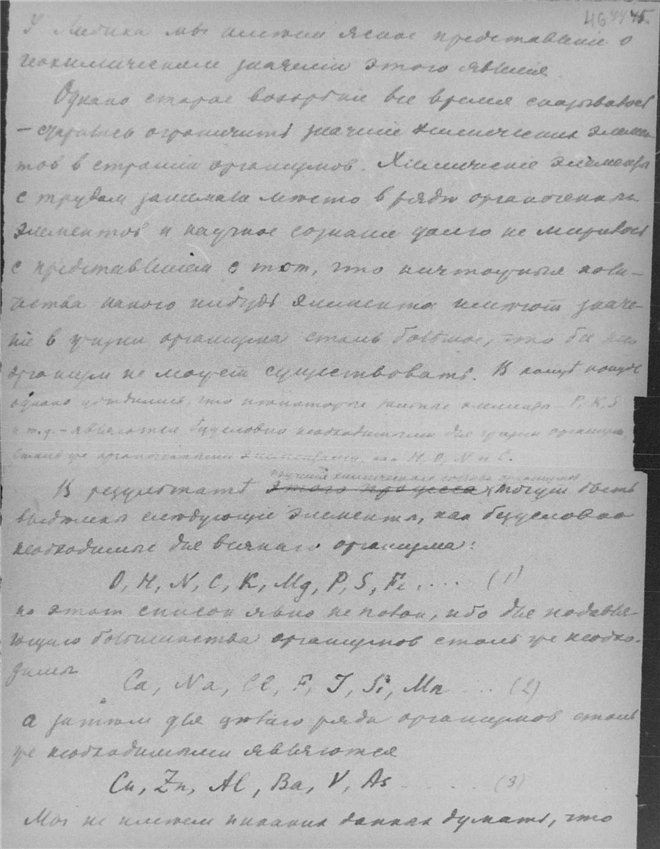 46 44 45.
У Либиха мы имеем ясное представление о
геохимическом значении этого явления.
Однако старое воззрение все время сказывалось
– старались ограничить значение химических элемен
тов в строении организмов. Химические элементы
с трудом занимали место в ряду органогенных
элементов и научное сознание долго не мирилось
с представлением о том, что ничтожные коли-
чества какого нибудь элемента имеют значе-
ние в жизни организма столь большое, что без них
организм не может существовать. В конце концов
однако убедились, что некоторые элементы – P, K, S
и т.д. – являются безусловно необходимыми для жизни организма,
столь же органогенными элементами, как H, O, N и C.
изучения химического состава организмов
В результате этого процесса могут быть
выделены следующие элементы, как безусловно
необходимые для всякого организма:
O, H, N, C, K, Mg, P, S, Fe .... (1)
но этот список явно не полон, ибо для подавля-
ющего большинства организмов столь же необхо-
димы
Ca, Na, Cl, F, J, Si, Mn ... (2)
а затем для целого ряда организмов столь
же необходимыми являются
Cu, Zn, Al, Ba, V, As ..... (3)
Мы не имеем никаких данных думать, что